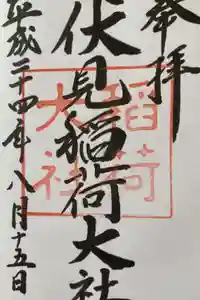 奉拝
伏見稲荷大社
稲荷
大社
平成二十四年八月十五日